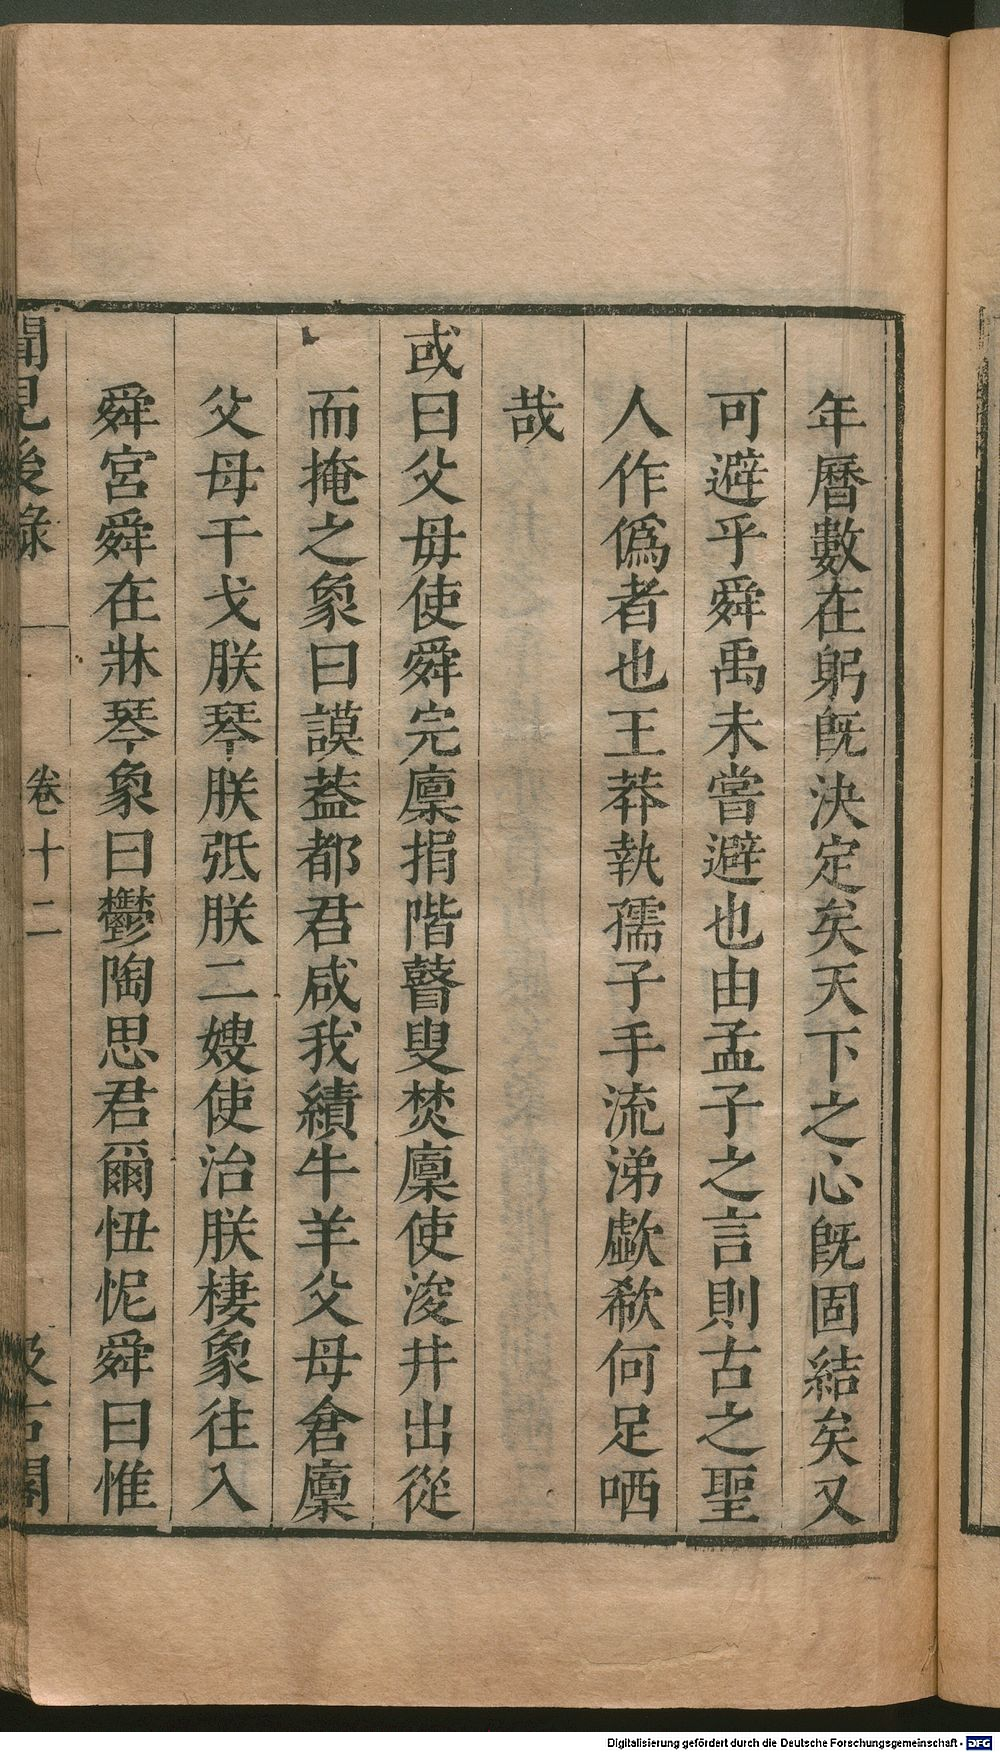 年曆數在躬旣決定矣天下之心旣固結矣又
可避乎舜禹未嘗避也由孟子之言則古之聖
人作僞者也王莽執孺子手流涕歔欷何足哂
哉
或曰父毋使舜完廩捐階瞽叟焚廩使浚井出從
而掩之象曰謨葢都君咸我績牛羊父母倉廩
父母干戈朕琴朕弤朕二嫂使治朕棲象往入
舜宮舜在牀琴象曰鬱陶思君爾忸怩舜曰惟
聞見後錄 卷十二 汲古閣
Digitalisierung gefördert durch die Deutsche Forschungsgemeinschaft - DFG